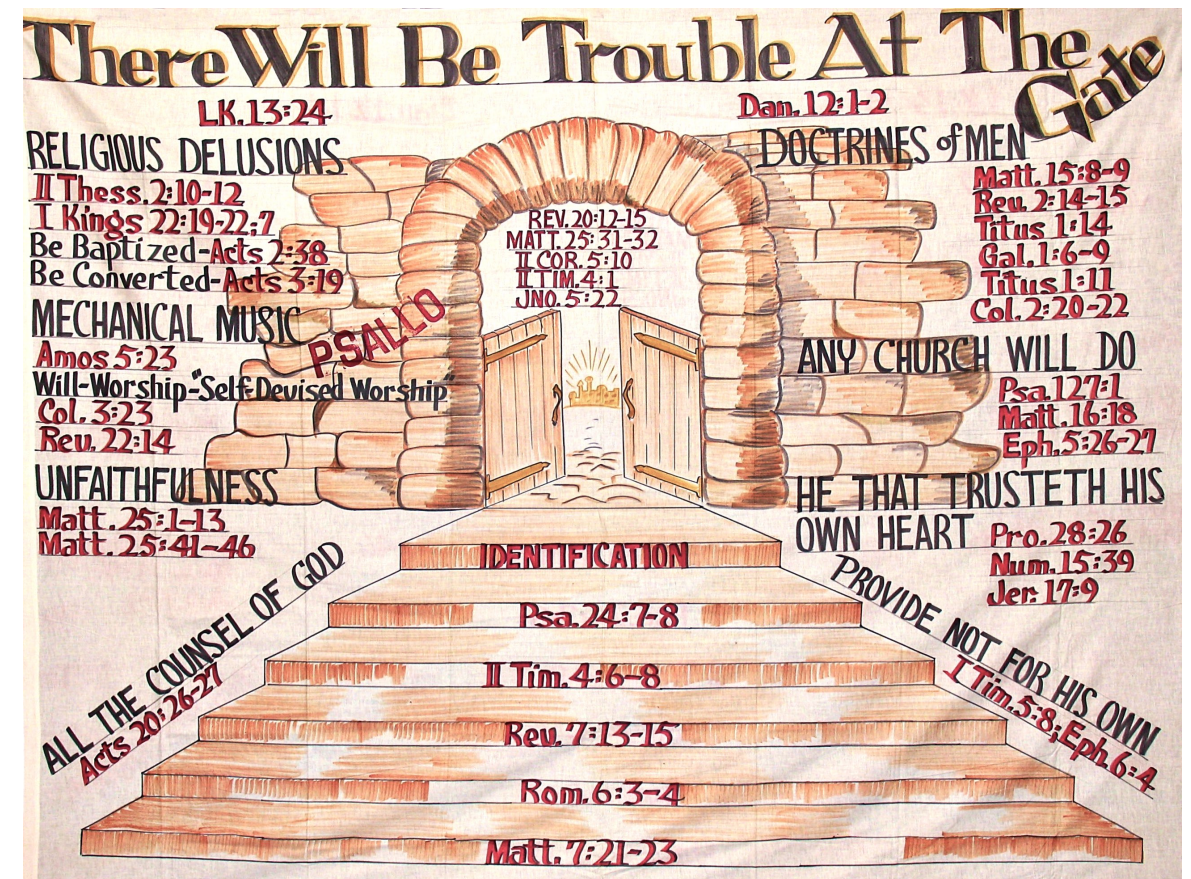 There Will Be Trouble At The
Gate
LK. 13:24
Dan. 12:1-2
RELIGIOUS DELUSIONS
II Thess. 2:10-12
I Kings 22:19-22:7
Be Baptized-Acts 2:38
Be Converted-Acts 3:19
MECHANICAL MUSIC
PSALLO
Amos 5:23
Will-Worship-"Self-Devised Worship"
Col. 3:23
Rev. 22:14
UNFAITHFULNESS
Matt. 25:1-13
Matt. 25:41-46
REV. 20:12-15
MATT. 25:31-32
II COR. 5:10
II TIM. 4:1
JNO. 5:22
DOCTRINES of MEN
Matt. 15:8-9
Rev. 2:14-15
Titus 1:14
Gal. 1:6-9
Titus 1:11
Col. 2:20-22
ANY CHURCH WILL DO
Psa. 127:1
Matt. 16:18
Eph. 5:26-27
HE THAT TRUSTETH HIS
OWN HEART Pro. 28:26
Num. 15:39
Jer. 17:9
ALL THE COUNSEL OF GOD
Acts 20:26-27
PROVIDE NOT FOR HIS OWN
I Tim. 5:8; Eph. 6:4
IDENTIFICATION
Psa. 24:7-8
II Tim. 4:6-8
Rev. 7:13-15
Rom. 6:3-4
Matt. 7:21-23